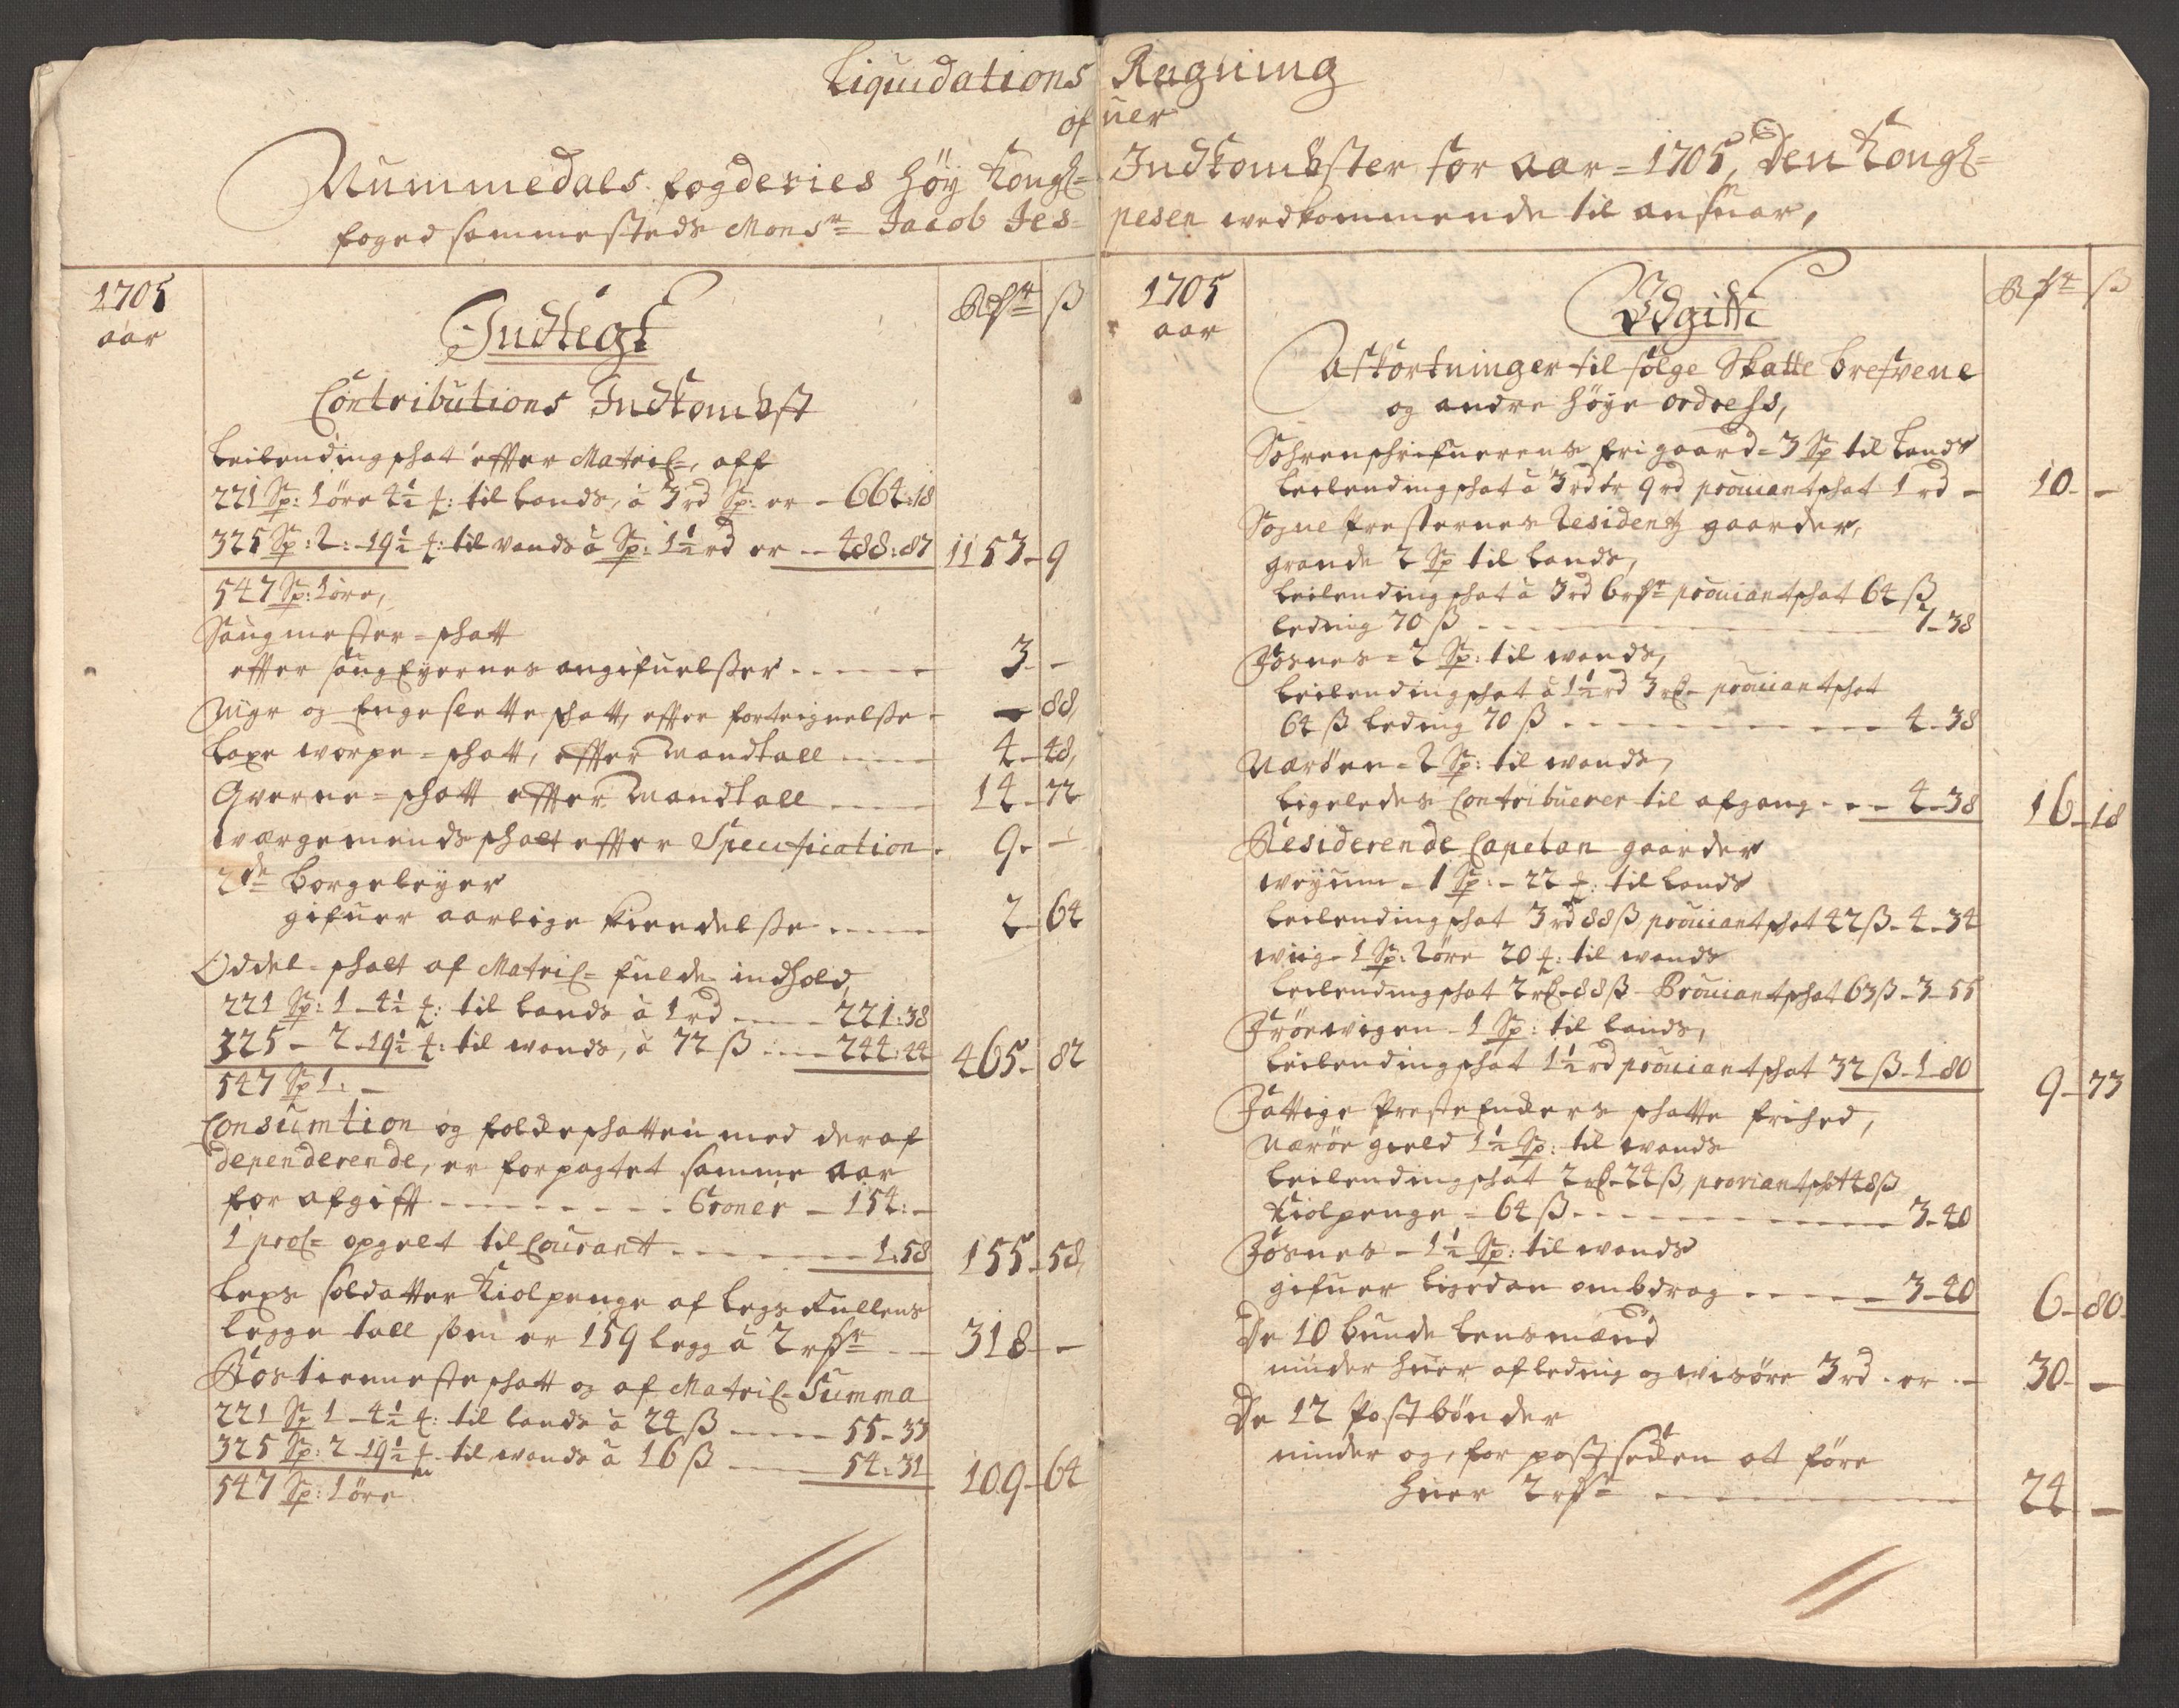 Liquidations Regning
ofuer
Nummedals fogderies höy Kongl= Indkombster for aar = 1705, Den Kongl=
foged sammesteds Monsr= Jacob Jespesen wedkommende til ansuar,
1705
aar
Rdr ß
Indtegt
Contributions Indkombst
Leilendingschat effter Matril=, aff
221 Sp: 1 öre 4½ : til lands, à 3 rd Sp: er - 664:18
325 Sp: 2: -19½ : til vands à Sp: 1½ rd er -- 488:87 1153 - 9
547 Sp: 1 öre,
Saugmester = schatt
effter saugEyernes angifuelßer - - - - - 3 - -
Nyr og Engesletteschatt, effter forteignelße - - 88,
Laxe worpe = schatt, effter Mandtall - - - - 4 - 48,
Qverne = schatt effter Mandtall - - - - 14 - 72
wærgemendschatt effter Specification - 9 - -
2de Borgeleyer
gifuer aarlige kiendelße - - - - - 2 - 64
Oddel-schatt af Matril= fulde indhold,
221 Sp: 1 - 4½ : til lands à 1 rd - - - - 221:38
325 - 2 - 19½ : til wands, à 72 ß - - - 244:44 465 - 82
547 Sp 1: -
Consumtion og folkeschatten med deraf
dependerende, er forpagtet samme aar
for afgifft - - - - - - - - - Croner - 154: -
1 procl= opgelt til Courant - - - - - - - 1:58 155 - 58,
Legs soldatter Kiolpenge af legsrullens
Legge tall som er 159 legg à 2 rdr= - - 318 - -
Rostienneste schatt og af Matril= Summa
221 Sp 1 - 4½ : til lands à 24 ß - - - - 55 - 33
325 Sp: 2 - 19½ til wands à 16 ß - - - - 54:31 109 - 64
547 Sp: 1 öre
1705
aar
Rdr ß
Udgifft
Afkortninger til fölge Skatte brefvene
og andre höye ordrehs,
Sohrenschrifuerens frigaard = 3 Sp til Lands
Leilendingschat à 3 rd er 9 rd prouiantschat 1 rd - 10 - -
Sogne Presternes Residentz gaarder,
grande 2 Sp til Lands,
Leilendingschat à 3 rd 6 rdr prouiantschat 64 ß
leding 70 ß - - - - - - - - - - 7 - 38
Fosnes = 2 Sp: til wands,
Leilendingschat à 1½ rd 3 rd - prouiantschat
64 ß leding 70 ß - - - - - - - - 4 - 38
Næröen - 2 Sp: til wands,
Ligeledes Contribuerer til afgang - - - 4 - 38 16 - 18
Residerende Capelan gaarder
weyum - 1 Sp: - 22 : til Lands
Leilendingschat 3 rd 88 ß prouiantschat 42 ß - 4 - 34
wiig - 1 Sp: 2 öre 20 : til wands
Leilendingschat 2 rd - 88 ß - Prouiantschat 63 ß - 3 - 55
Fröewigen - 1 Sp: til Lands,
Leilendingschat 1½ rd prouiantschat 32 ß - 1 - 80 9 - 73
Fattige PresteEnckers schatte frihed,
Næröe gield 1½ Sp: til wands
Leilendingschat 2 rd - 24 ß, proviantschat 48 ß
Kiolpenge = 64 ß - - - - - - - - - - - 3 - 40
Fosnes - 1½ Sp: til wands
gifuer ligedan ombdrag - - - - - - 3 - 40 6 - 80
De 10 Bunde Lensmænd
nuder huer af leding og wisöre 3 rd - er - 30 - -
De 12 Postbönder
nuder og, for postsecken at före
huer 2 rdr - - - - - - - - - - 24 - -